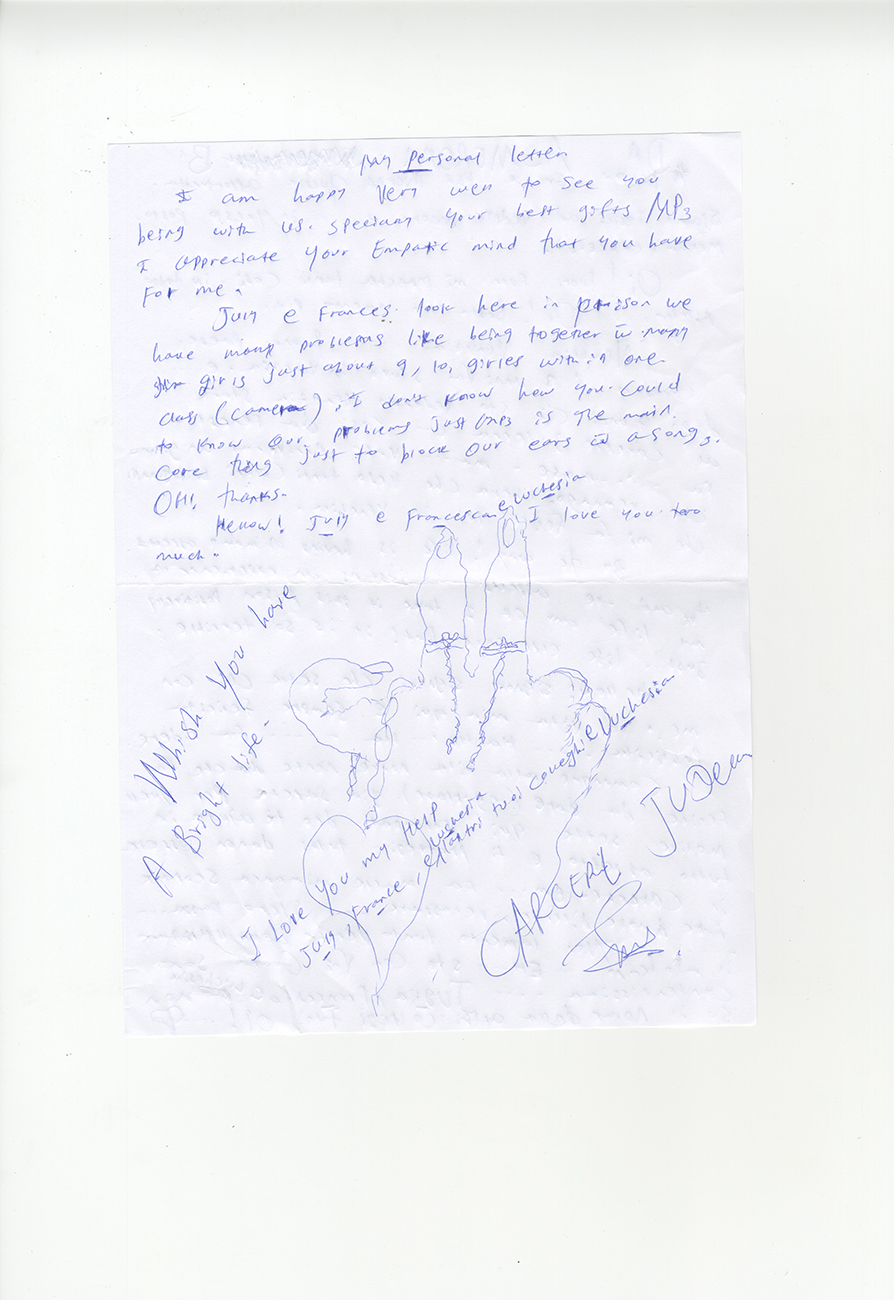 My personal letter
I am happy very well to see you
being with us. specialy your best gifts MP3
I appreciate your Empatic mind that you have
for me.
July e Frances. look here in prison we
have many problems like being together w many
girls just about 9, 10, girles with in one
class (camera). I don't know how you could
to know our problems just MP3 is the main.
Core thing just to block our ears w a song.
OH! thanks.
Hellow! July e Francesca e Luchesia I love you too
much.
Whish you have
A Bright life.
I Love you my Help
July, France, e Luchesia
altri tuoi colleghi e Luchesia
CARCERI